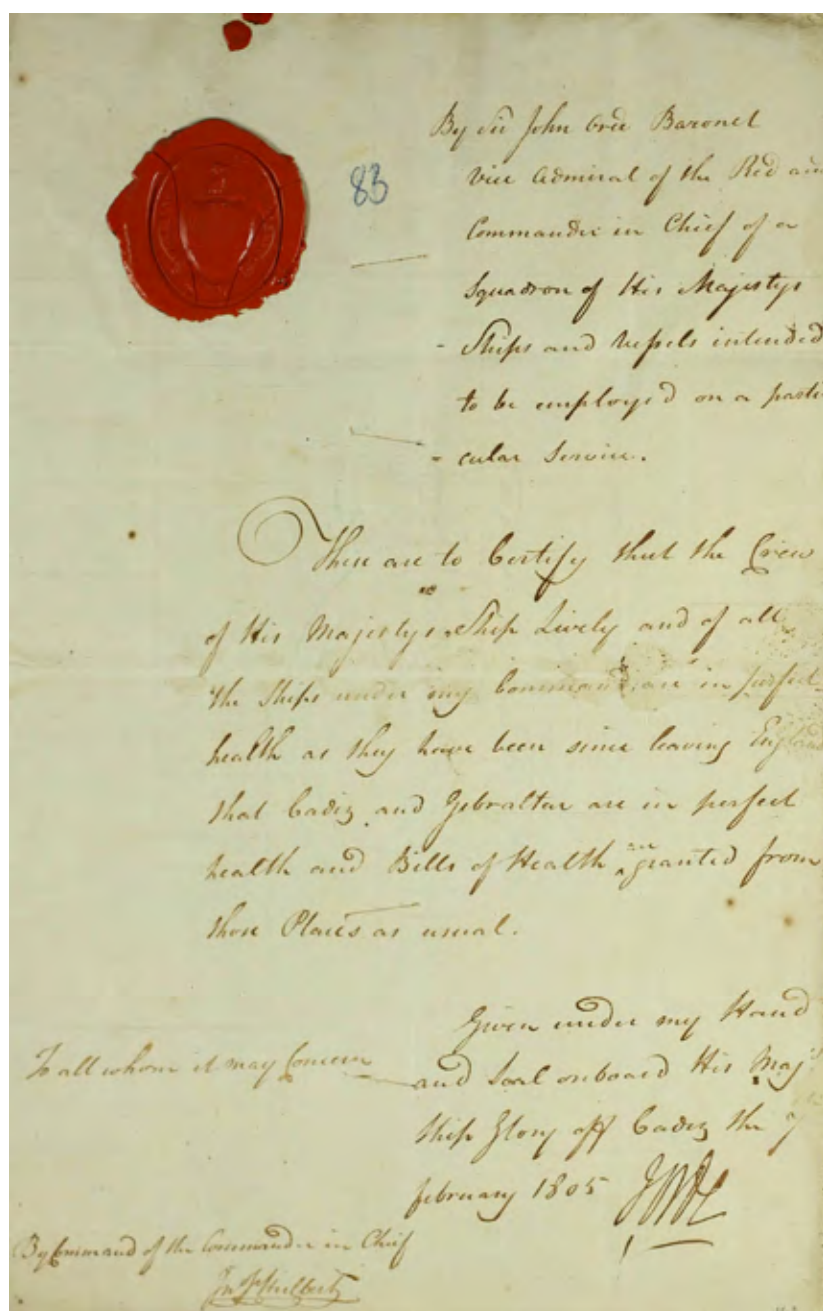 83
By Sir John Orde Baronet
Vice Admiral of the Red and
Commander in Chief of a
Squadron of His Majestys
- Ships and Vessels intended
to be employe'd on a parti
- cular Service.
These are to Certify that the Crew
of His Majestys Ship Lively and of all
the Ships under my Command are in perfect
health as they have been since leaving England
that Cadiz and Gibraltar are in perfect
health and Bills of Health are granted from
those Places as usual.
Given under my Hand
and Seal onboard His Maj's
Ship Glory off Cadiz the
february 1805 JOrde
To all whom it may Concern
By Command of the Commander in Chief